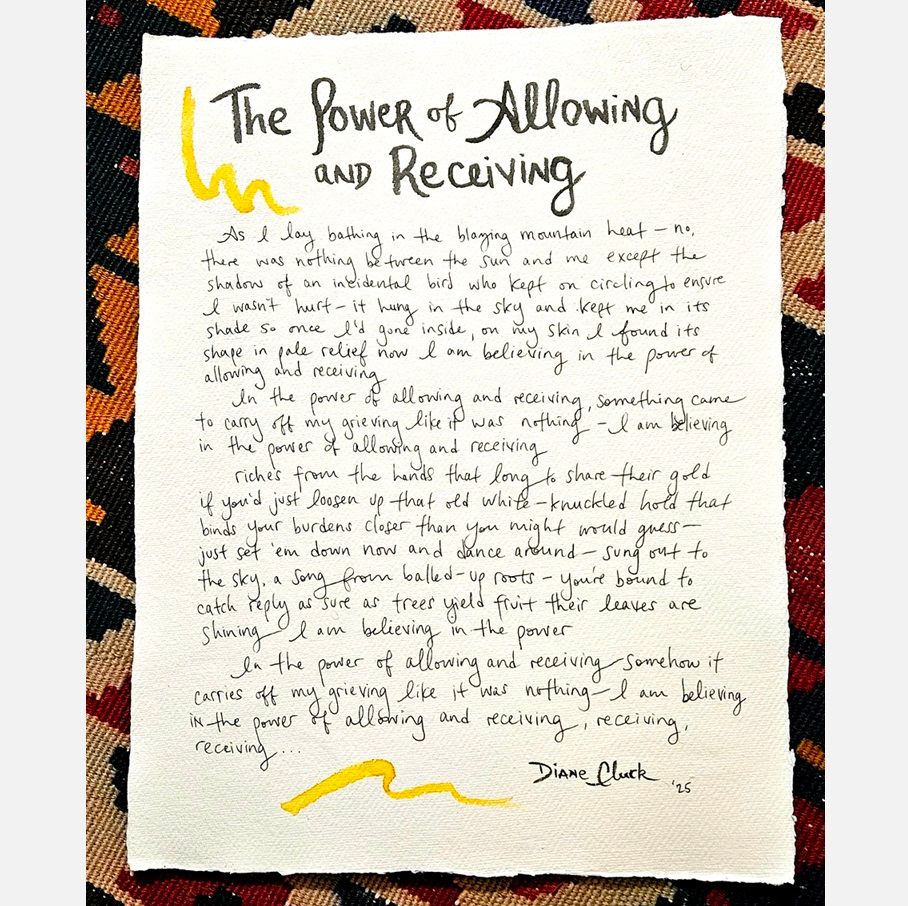 The Power of Allowing
and Receiving
As I lay bathing in the blazing mountain heat – no,
there was nothing between the sun and me except the
shadow of an incidental bird who kept on circling to ensure
I wasn't hurt – it hung in the sky and kept me in its
shade so once I'd gone inside, on my skin I found its
shape in pale relief now I am believing in the power of
allowing and receiving
In the power of allowing and receiving, something came
to carry off my grieving like it was nothing – I am believing
in the power of allowing and receiving
riches from the hands that long to share their gold
if you'd just loosen up that old white-knuckled hold that
binds your burdens closer than you might would guess –
just set 'em down now and dance around – sung out to
the sky, a song from balled-up roots – you're bound to
catch reply as sure as trees yield fruit their leaves are
shining I am believing in the power
In the power of allowing and receiving somehow it
carries off my grieving like it was nothing – I am believing
in the power of allowing and receiving, receiving,
receiving...
Diane Cluck
'25